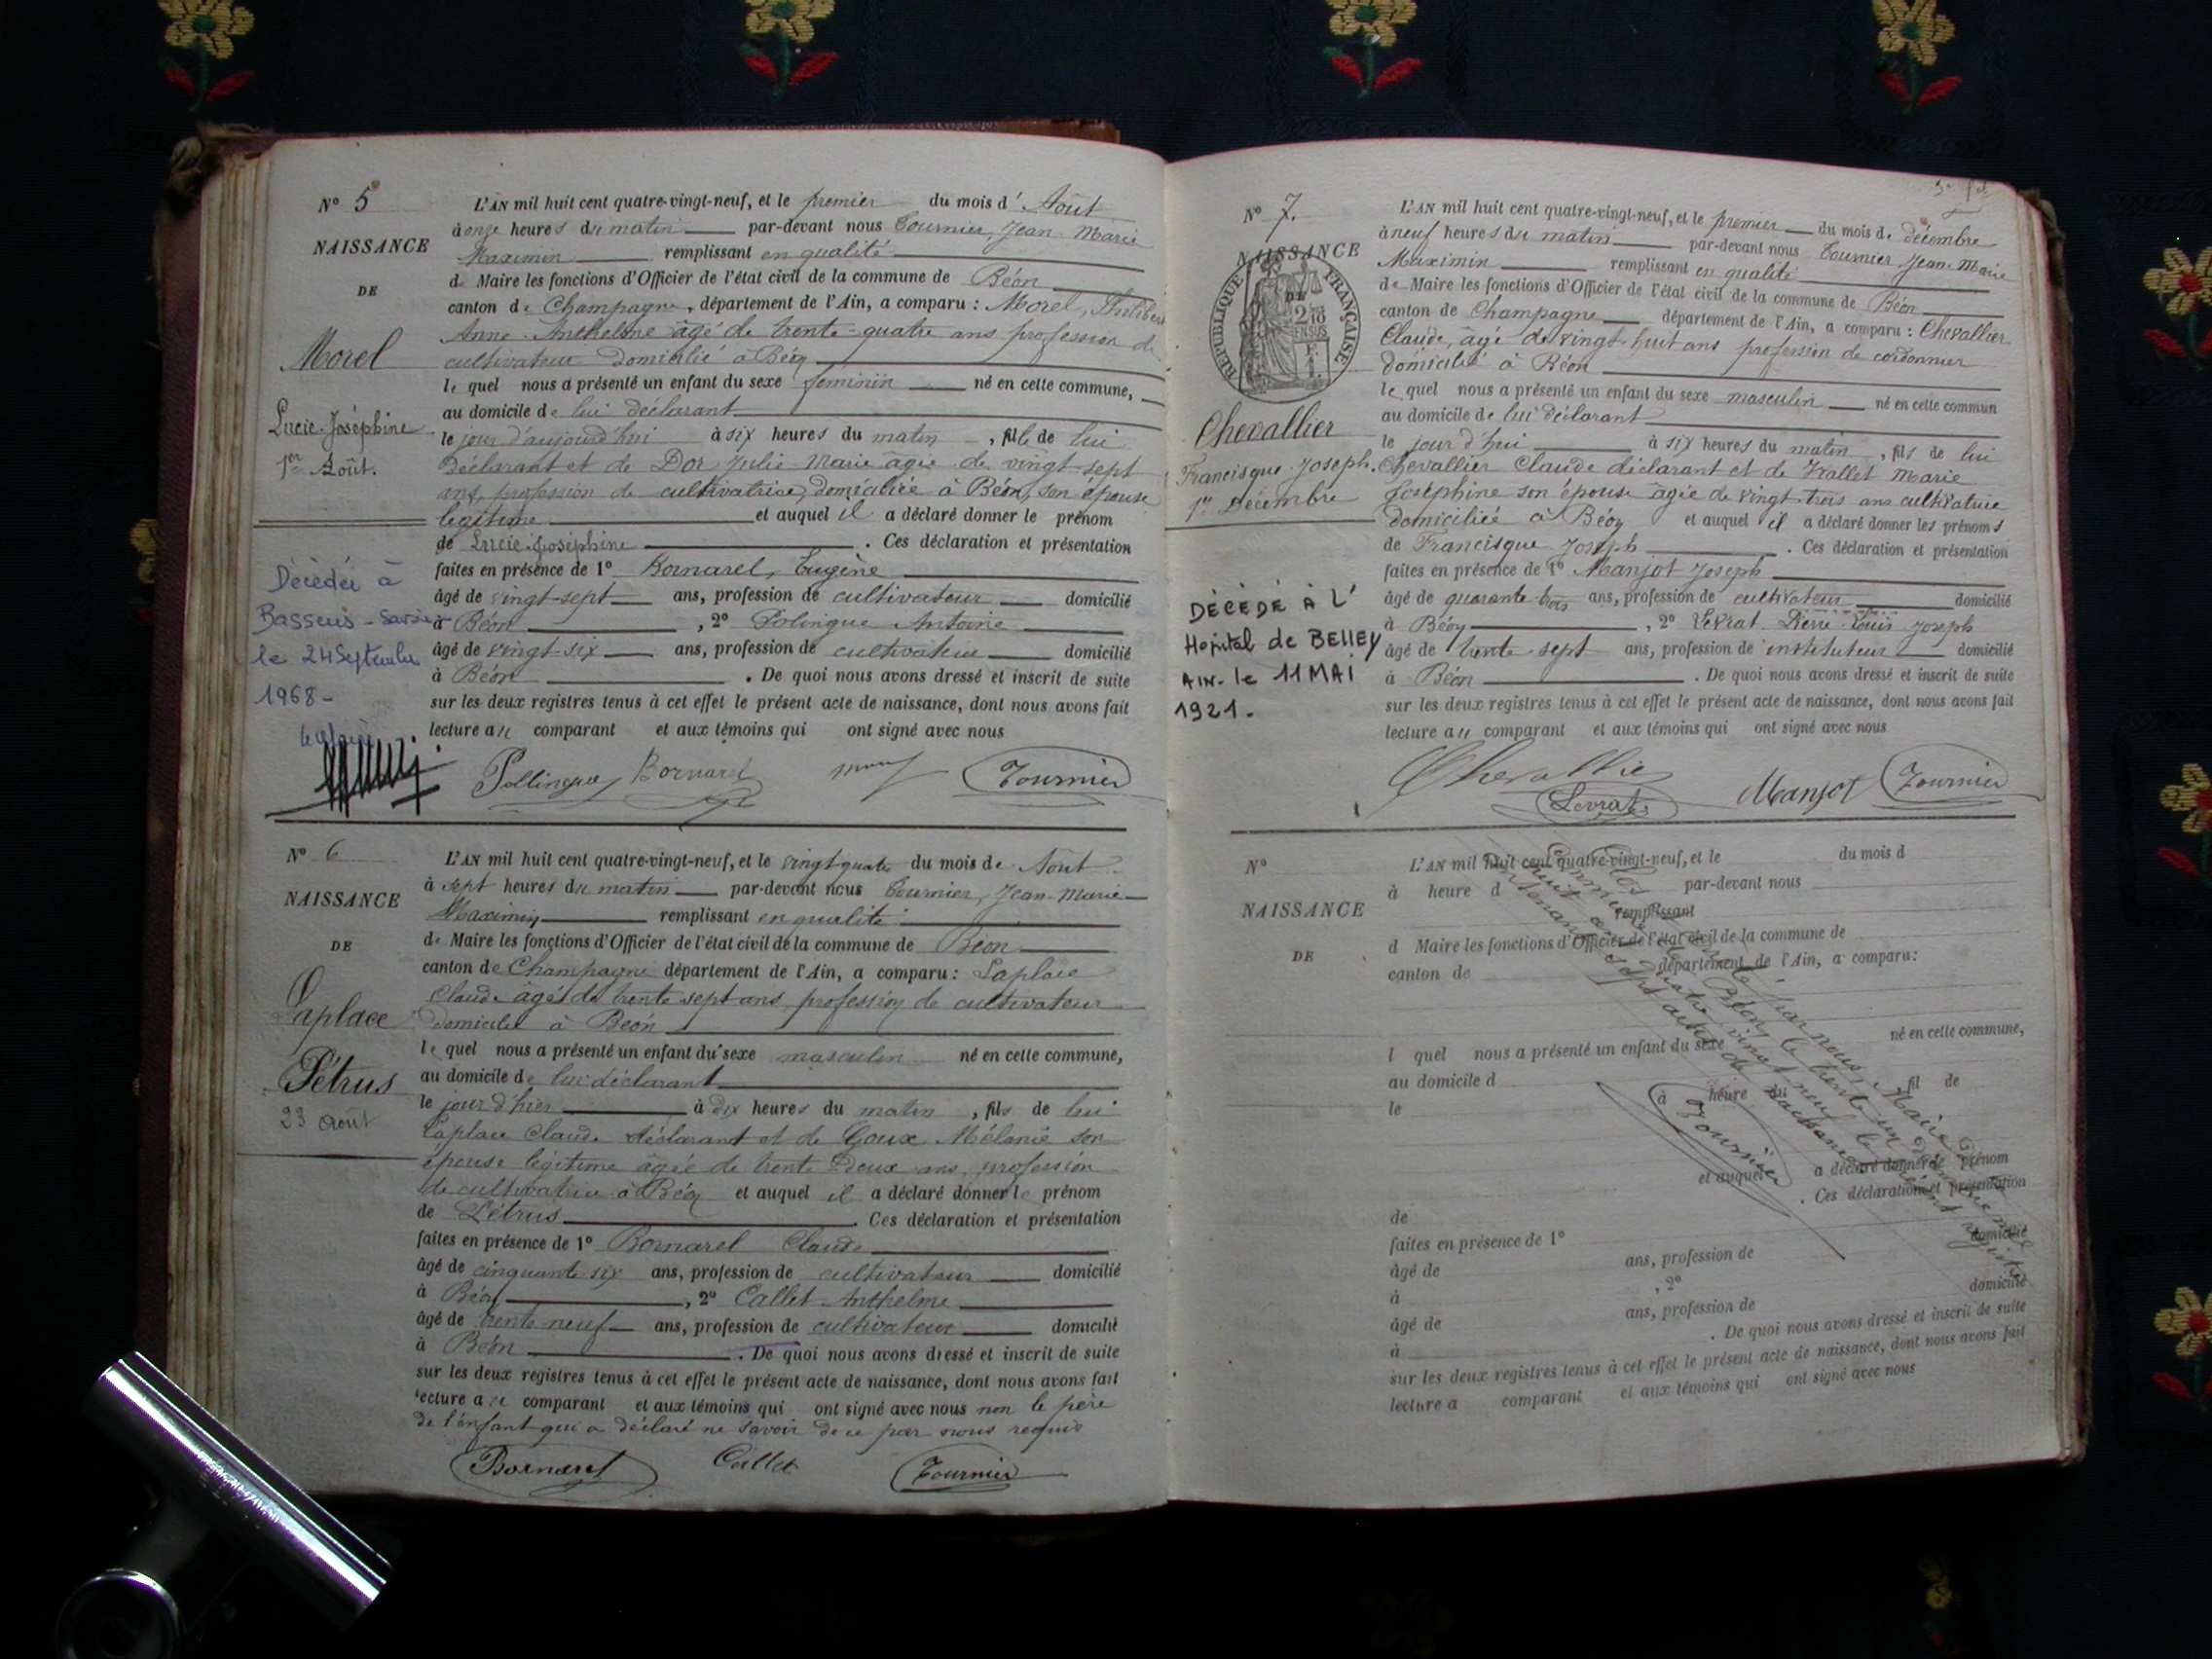 N° 5
NAISSANCE
DE
Morel
Lucie-Joséphine
1er Août.
Décédée à
le 24 Septembre
1968 -
L'AN mil huit cent quatre-vingt-neuf, et le premier du mois d'Août
à onze heures du matin par-devant nous Tournier, Jean-Marie
Maximin remplissant en qualité
de Maire les fonctions d'Officier de l'état civil de la commune de Béon
canton de Champagne, département de l'Ain, a comparu : Morel, Philibert
Anne-Anthelme âgé de trente-quatre ans profession de
cultivateur domicilié à Béon
lequel nous a présenté un enfant du sexe féminin né en cette commune,
au domicile de lui déclarant
le jour d'aujourd'hui à six heures du matin, fille de lui
déclarant et de Dor Julie Marie âgée de vingt-sept
ans, profession de cultivatrice, domiciliée à Béon, son épouse
légitime et auquel il a déclaré donner le prénom
de Lucie-Joséphine. Ces déclaration et présentation
faites en présence de 1° Bornarel, Eugène
âgé de vingt-sept ans, profession de cultivateur domicilié
à Béon, 2° Polingue Antoine
âgé de vingt-six ans, profession de cultivateur domicilié
à Béon. De quoi nous avons dressé et inscrit de suite
sur les deux registres tenus à cet effet le présent acte de naissance, dont nous avons fait
lecture au comparant et aux témoins qui ont signé avec nous
Pollingue Bornarel Tournier
N° 6
NAISSANCE
DE
Laplace
Pétrus
23 Août
L'AN mil huit cent quatre-vingt-neuf, et le vingt-quatre du mois de Août
à sept heures du matin par-devant nous Tournier, Jean-Marie
Maximin remplissant en qualité
de Maire les fonctions d'Officier de l'état civil de la commune de Béon
canton de Champagne département de l'Ain, a comparu : Laplace
Claude âgé de trente sept ans, profession de cultivateur
domicilié à Béon
lequel nous a présenté un enfant du sexe masculin né en cette commune,
au domicile de lui déclarant
le jour d'hier à dix heures du matin, fils de lui
Laplace Claude déclarant et de Goux Mélanie son
épouse légitime âgée de trente deux ans, profession
de cultivatrice à Béon et auquel il a déclaré donner le prénom
de Pétrus. Ces déclaration et présentation
faites en présence de 1° Bornarel Claude
âgé de cinquante six ans, profession de cultivateur domicilié
à Béon, 2° Callet Anthelme
âgé de trente neuf ans, profession de cultivateur domicilié
à Béon. De quoi nous avons dressé et inscrit de suite
sur les deux registres tenus à cet effet le présent acte de naissance, dont nous avons fait
lecture au comparant et aux témoins qui ont signé avec nous non le père
de l'enfant qui a déclaré ne savoir de ce par nous requis
Bornarel Callet Tournier
N° 7.
NAISSANCE
DE
RÉPUBLIQUE FRANÇAISE
Chevallier
Francisque-Joseph.
1er Décembre
DÉCÉDÉ À L'
Hopital de BELLEY
AIN. le 11 MAI
1921.
L'AN mil huit cent quatre-vingt-neuf, et le premier du mois de décembre
à neuf heures du matin par-devant nous Tournier Jean-Marie
Maximin remplissant en qualité
de Maire les fonctions d'Officier de l'état civil de la commune de Béon
canton de Champagne département de l'Ain, a comparu : Chevallier
Claude, âgé de vingt-huit ans profession de cordonnier
domicilié à Béon
lequel nous a présenté un enfant du sexe masculin né en cette commun
au domicile de lui déclarant
le jour d'hui à six heures du matin, fils de lui
Chevallier Claude déclarant et de Trallet Marie
Joséphine son épouse âgée de vingt-trois ans cultivatrice
domiciliée à Béon et auquel il a déclaré donner les prénoms
de Francisque Joseph. Ces déclaration et présentation
faites en présence de 1° Manjot Joseph
âgé de quarante-trois ans, profession de cultivateur domicilié
à Béon, 2° Levrat Pierre-Louis Joseph
âgé de trente-sept ans, profession de instituteur domicilié
à Béon. De quoi nous avons dressé et inscrit de suite
sur les deux registres tenus à cet effet le présent acte de naissance, dont nous avons fait
lecture au comparant et aux témoins qui ont signé avec nous
Chevallier Levrat Manjot Tournier
N°
NAISSANCE
DE
L'AN mil huit cent quatre-vingt-neuf, et le du mois d
à heure d par-devant nous
remplissant
d Maire les fonctions d'Officier de l'état civil de la commune de
canton de département de l'Ain, a comparu :
l quel nous a présenté un enfant du sexe né en cette commune,
au domicile d
le à heure du fil de
et auquel a déclaré donner le prénom
de . Ces déclaration et présentation
faites en présence de 1°
âgé de ans, profession de domicilié
à , 2°
âgé de ans, profession de domicilié
à . De quoi nous avons dressé et inscrit de suite
sur les deux registres tenus à cet effet le présent acte de naissance, dont nous avons fait
lecture a comparant et aux témoins qui ont signé avec nous
Clos et arrêté par nous, Maire de
la Commune de Béon, le trente-un Décembre mil
huit cent quatre-vingt-neuf le présent registre
contenant sept actes de naissance
Tournier